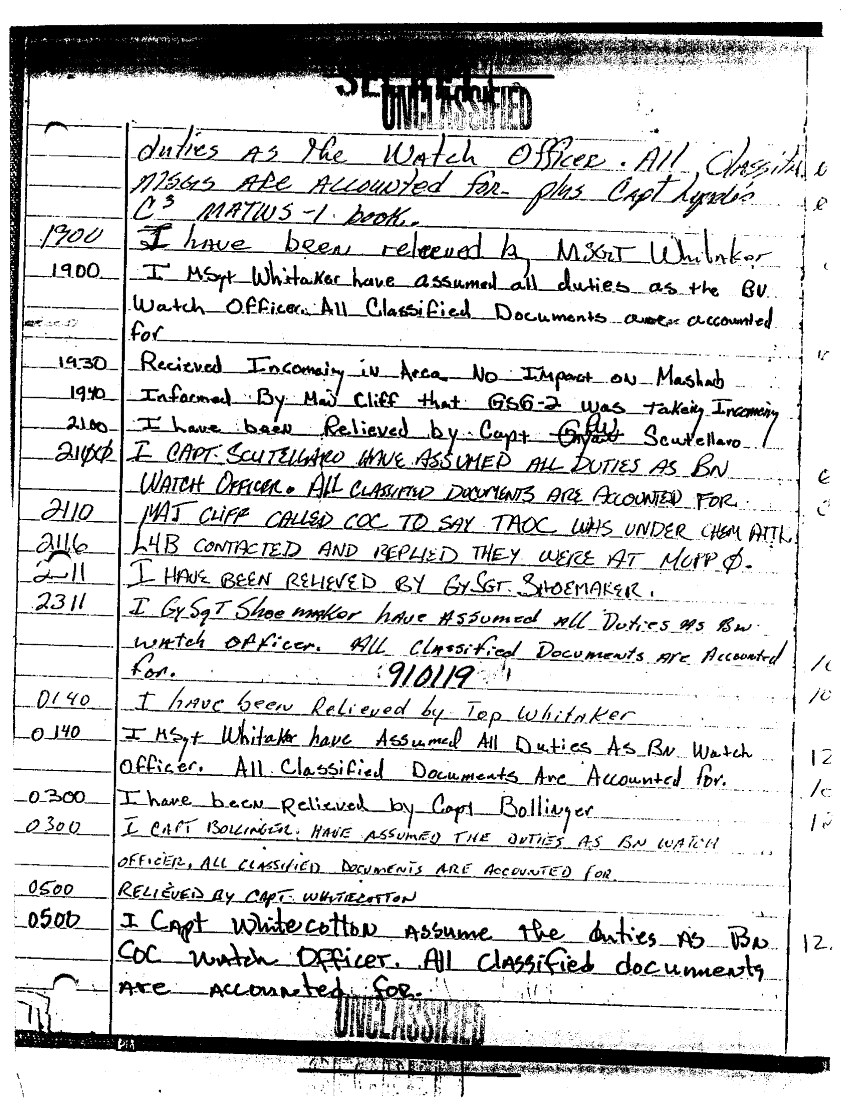 SECRET
UNCLASSIFIED
duties as the Watch Officer. All Classifi
MSGS are accounted for plus Capt
C³ MATWS-1 book.
1900 I have been releeved by MSGT Whitaker
1900 I MSgt Whitaker have assumed all duties as the BN
Watch Officer. All Classified Documents are accounted
for
1930 Recieved Incomeing in Area No Impact on Mashab
1940 Informed By Maj Cliff that GSG-2 was Takeing Incomeing
2100 I have been Relieved by Capt Scutellaro
2100 I CAPT. SCUTELLARO HAVE ASSUMED ALL DUTIES AS BN
WATCH OFFICER. ALL CLASSIFIED DOCUMENTS ARE ACCOUNTED FOR.
2110 MAJ CLIFF CALLED COC TO SAY TAOC WAS UNDER CHEM ATTK
2116 L4B CONTACTED AND REPLIED THEY WERE AT MOPP Ø.
2311 I HAVE BEEN RELIEVED BY GYSGT. SHOEMAKER.
2311 I GySgT Shoemaker have Assumed All Duties as BN
Watch Officer. All Classified Documents Are Accounted
for.
910119
0140 I have been Relieved by Top Whitaker
0140 I MSgt Whitaker have Assumed All Duties As BN Watch
Officer. All Classified Documents Are Accounted for.
0300 I have been Relieved by Capt Bollinger
0300 I CAPT BOLLINGER. HAVE ASSUMED THE DUTIES AS BN WATCH
OFFICER, ALL CLASSIFIED DOCUMENTS ARE ACCOUNTED FOR.
0500 RELIEVED BY CAPT. WHITECOTTON
0500 I Capt Whitecotton Assume the duties As BN
COC Watch Officer. All Classified documents
Are accounted for.
UNCLASSIFIED